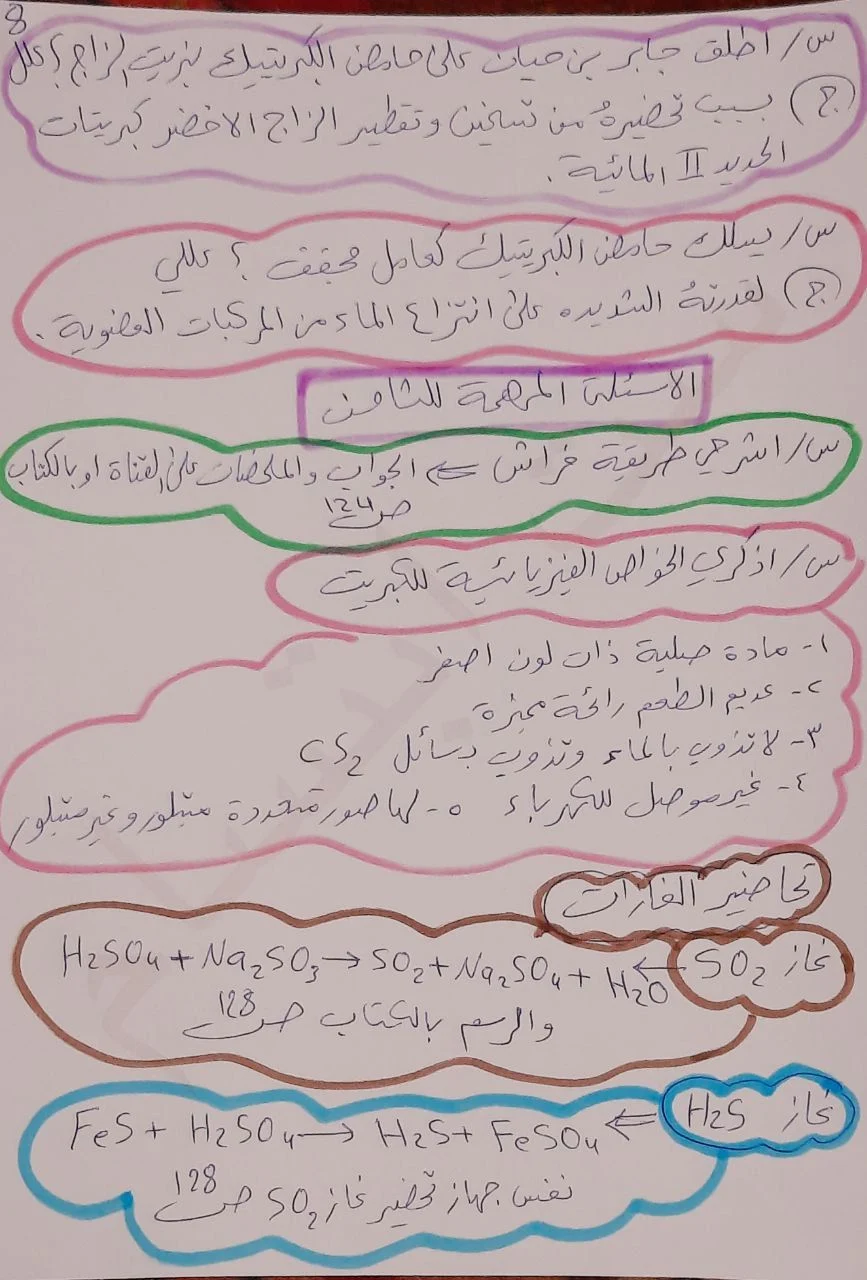 8
س/ اطلق جابر بن حيان على حامض الكبريتيك بزيت الزاج ؟ علل
ج) بسبب تحضيرهُ من تسخين وتقطير الزاج الاخضر كبريتات
الحديد II المائية .
س/ يسلك حامض الكبريتيك كعامل مجفف ؟ عللي
ج) لقدرتهُ الشديده على انتزاع الماء من المركبات العضوية .
الاسئلة المهمة للثامن
س/ اشرحي طريقة فراش ⇐ الجواب والملخصات على القناة او بالكتاب
ص 124
س/ اذكري الخواص الفيزيائية للكبريت
١- مادة صلبة ذات لون اصفر
٢- عديم الطعم رائحة مميزة
٣- لا تذوب بالماء وتذوب بسائل CS2
٤- غير موصل للكهرباء ٥- لها صور متعددة متبلور وغير متبلور
تحاضير الغازات
غاز SO2 ← H2SO4 + Na2SO3 → SO2 + Na2SO4 + H2O
والرسم بالكتاب ص 128
غاز H2S ⇐ FeS + H2SO4 → H2S + FeSO4
نفس جهاز تحضير غاز SO2 ص 128